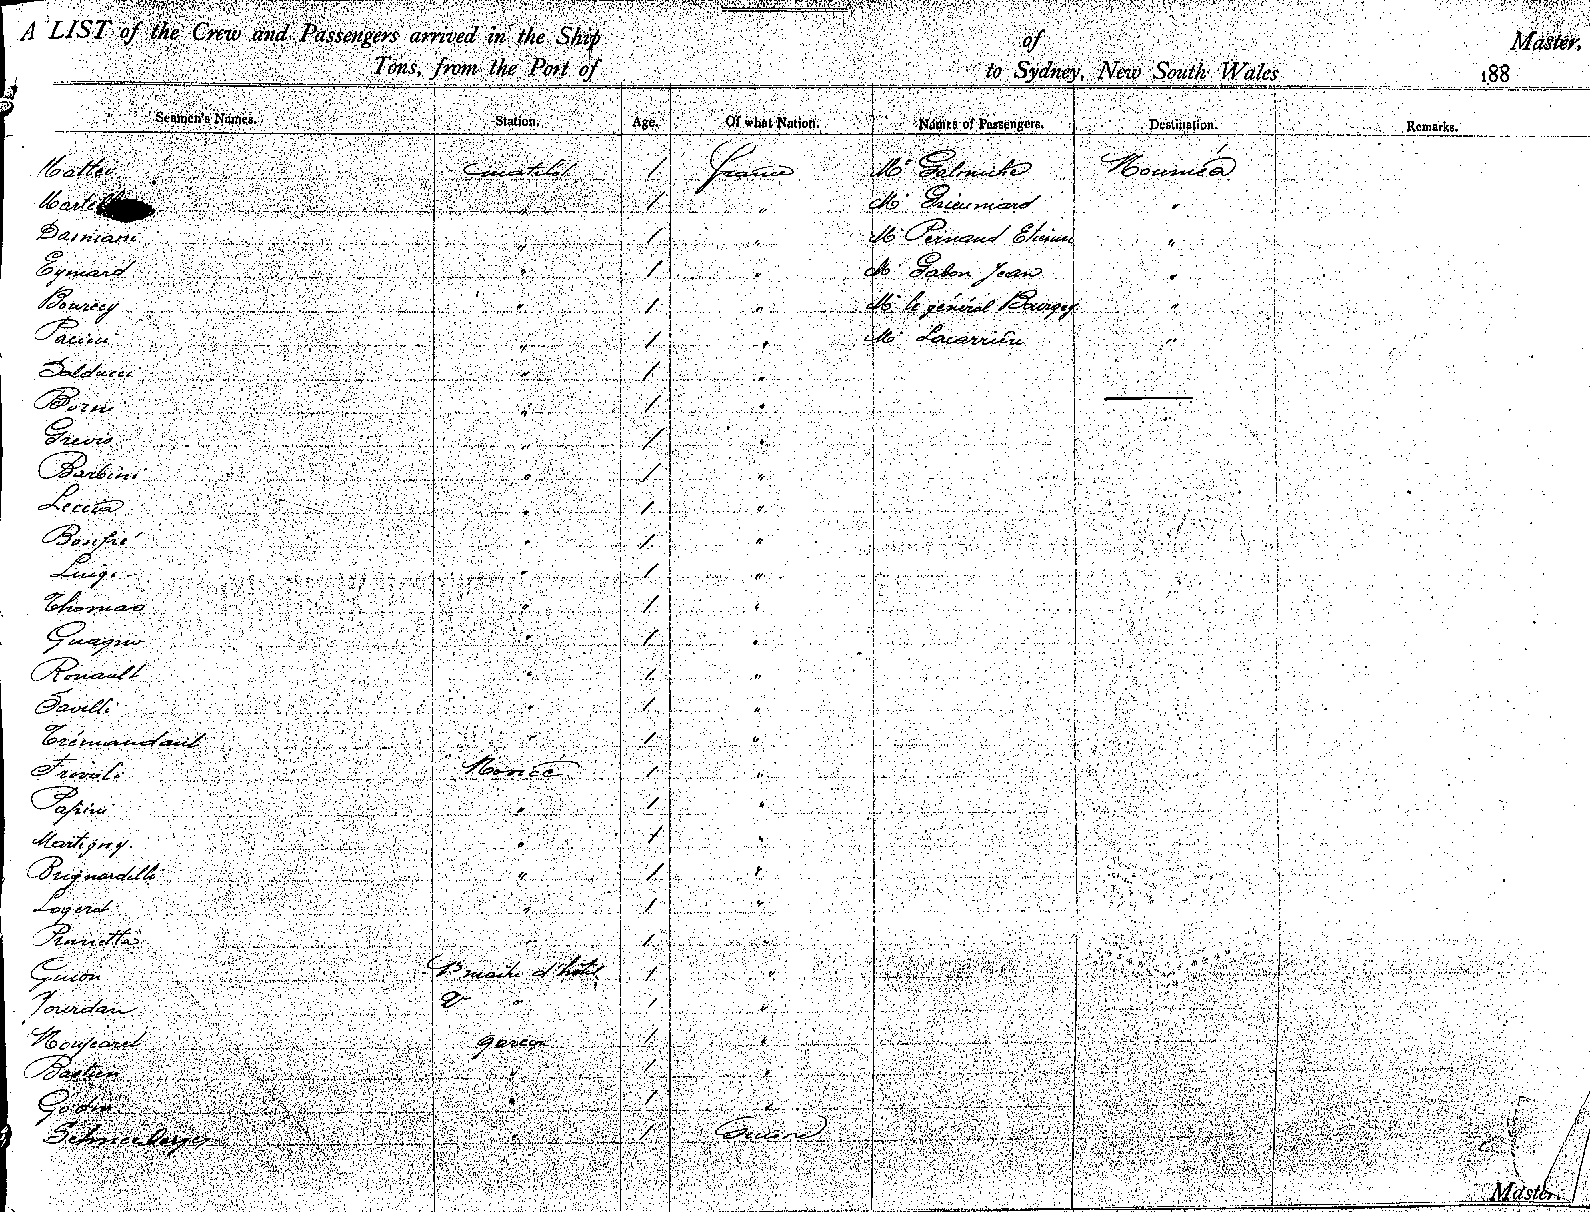 A LIST of the Crew and Passengers arrived in the Ship of Master,
Tons, from the Port of to Sydney, New South Wales 188
Seamen's Names. Station. Age. Of what Nation. Names of Passengers. Destination. Remarks.
Mattei matelot 1 france Mr Nouméa
Martel " 1 " Mr "
Damiani " 1 " Mr Pernaud Etienne "
Eymard " 1 " Mr Gabon Jean "
Bourcey " 1 " Mr le général Bourgey "
Pacini " 1 " Mr Lacarrière "
" 1 "
Borni " 1 "
Grevis " 1 "
Barbini " 1 "
Leccia " 1 "
Bonifré " 1 "
Luigi " 1 "
Thomas " 1 "
Guagno " 1 "
Ronault " 1 "
Savelli " 1 "
Trémaudant " 1 "
Novice 1 "
Papini " 1 "
Martigny " 1 "
Brignardelli " 1 "
Logerot " 1 "
" 1 "
Guion maitre d'hôtel 1 "
Jourdan 2 " 1 "
garçon 1 "
Bastien " 1 "
Godin " 1 "
Schneeberger " 1
Master.